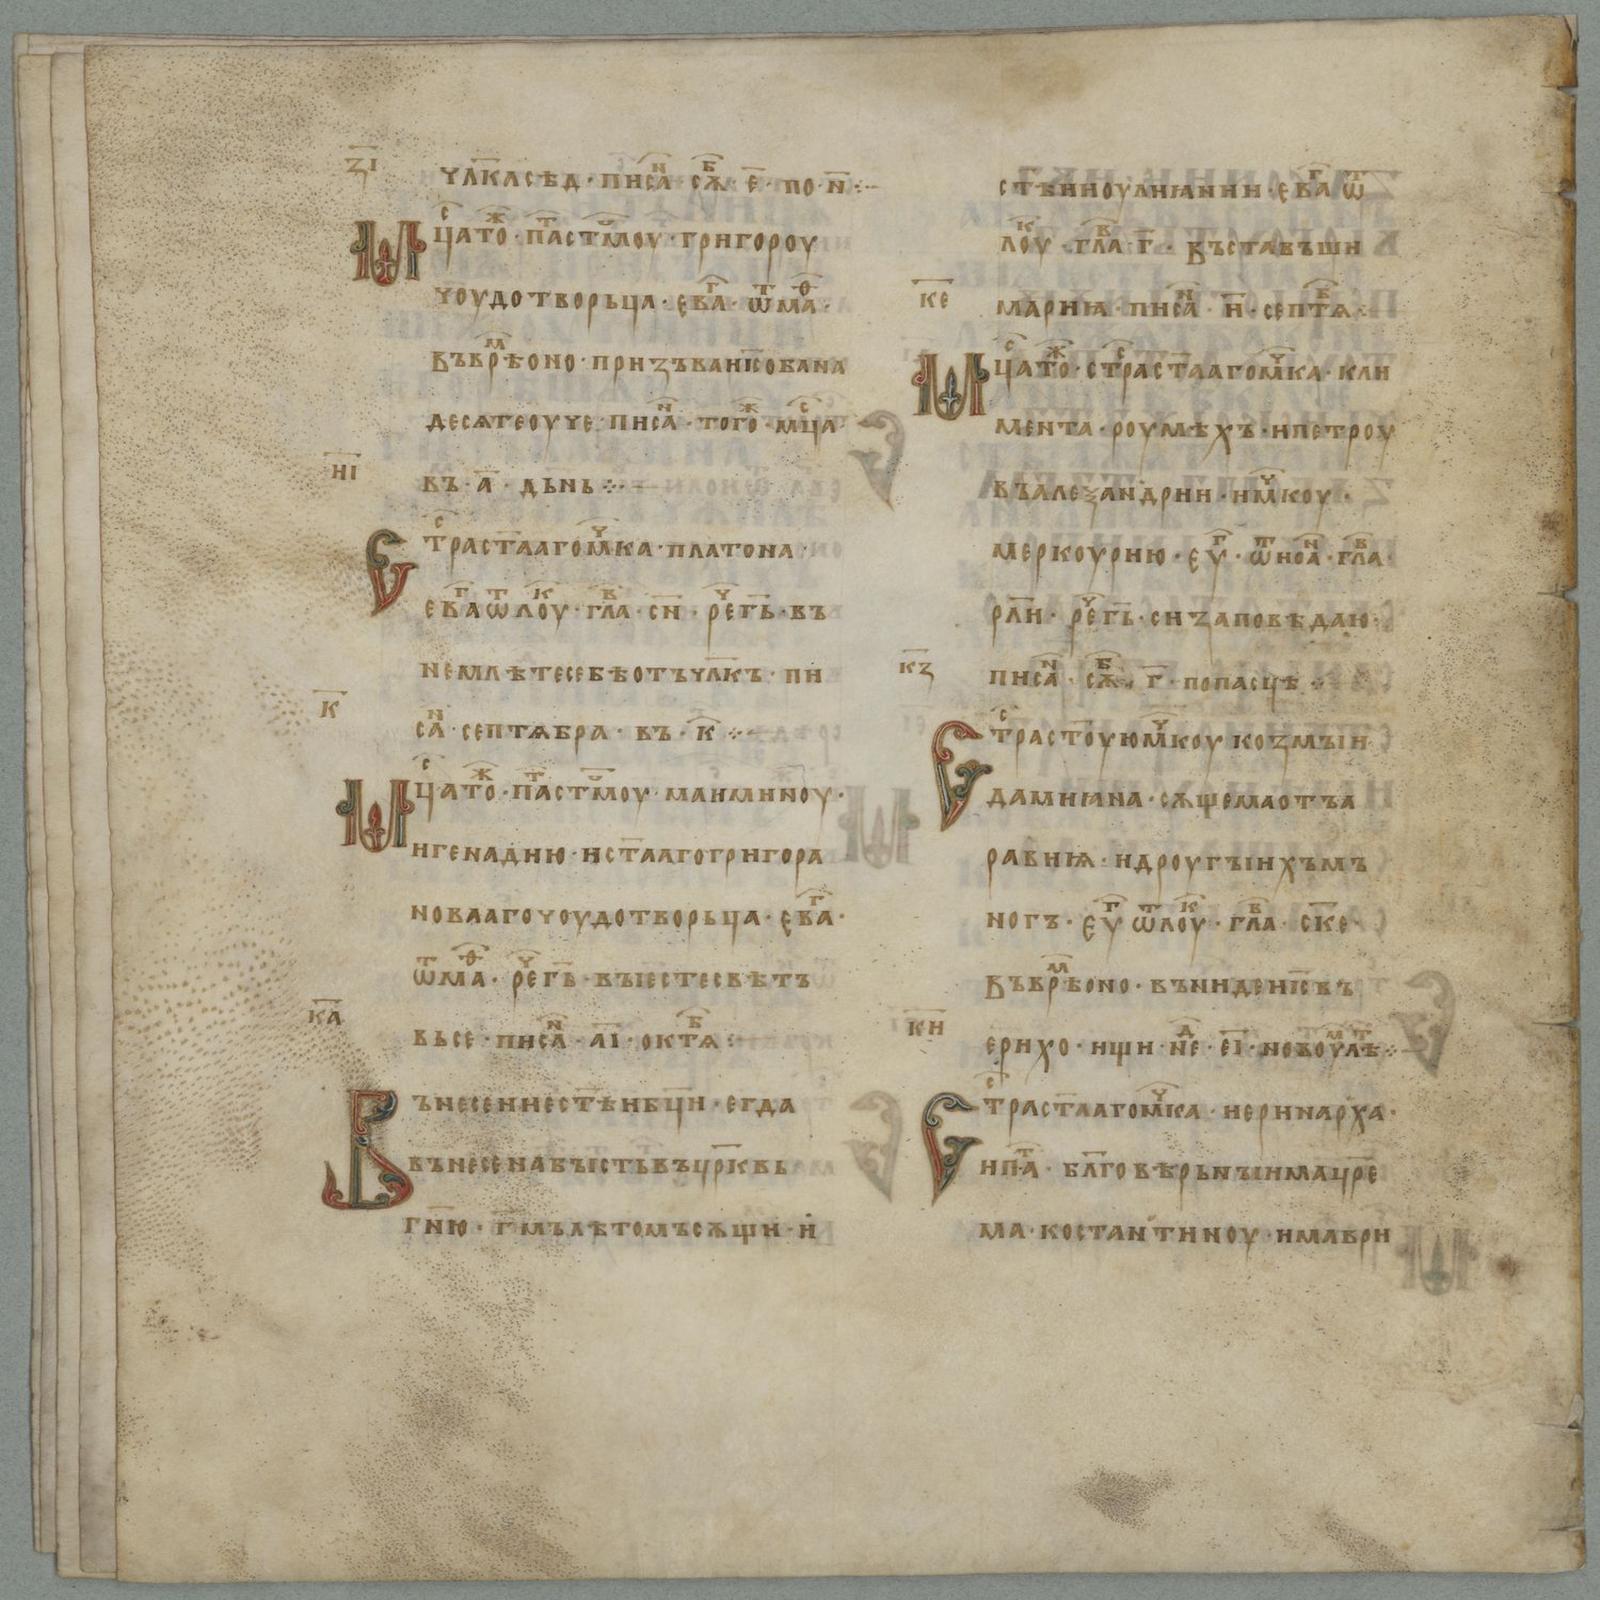 З҃І
ЧЛ҃КАСѢД · ПИСАⷩ҇ СѪⷠ҇ Є҃ · ПО · Н҃ ·:·
Мⷭ҇ЦАТОⷤ · ПАⷮСТ҃МОУ · ГРИГОРОУ
ЧОУДОТВОРЬЦА · ЄВАⷢ҇ · ѾМАⷴ ·
ВЪВРѢⷨОНО · ПРИЗЪВАНІСОБАНА
ДЕСѦТЕОУЧЕ · ПИСАⷩ҇ · ТОГОⷤ · МЦⷭ҇А
Н҃І
ВЪ · А҃ · ДЬНЬ ·:·
СⷭТРАСТААГОМⷱ҇КА · ПЛАТОНА ·
ЕВАⷢ҇ѾЛОУⷦ · ГЛАⷡ҇ · С҃Н · РЕⷱ҇Г҃Ь · ВЪ
НЕМЛѢТЕСЕБѢОТЪЧЛ҃КЪ · ПИ
К҃
САⷩ҇ · СЕПТѦБРА · ВЪ · К҃ ·:·
МⷭЦАТОⷤ · ПАⷮСТ҃МОУ · МАѮМИНОУ ·
ИГЕНАДИЮ · ИСТААГОГРИГОРА
НОВААГОЧОУДОТВОРЬЦА · ЄВАⷢ҇ ·
ѾМАⷴ · РЕⷱ҇Г҃Ь · ВЪІЕСТЕСВѢТЪ
К҃А
ВЬСЕ · ПИСАⷩ҇ · А҃І · ОКТѦⷠ҇ ·:·
ВЪНЕСЕНИЕСТ҃ѢИБ҃ЦИ · ЕГДА
ВЪНЕСЕНАБЪІСТЬВЪЦР҃КВЬ
Г҃НЮ · Г҃МЪЛѢТОМЪСѪЩИ · И
СТ҃ѢИНОУАНИАНИИ · ЄВАⷢ҇ Ѿ
ЛОУⷦ · ГЛАⷡ҇ · Г҃ · ВЪСТАВЪШИ
К҃Е
МАРИꙖ · ПИСАⷩ҇ · Н҃ · СЕПТѦⷠ҇ ·
МⷭЦАТОⷤ · СⷭТРАСТААГОМⷱ҇КА · КЛИ
МЕНТА · РОУМѢХЪ · ИПЕТРОУ
ВЪАЛЕѮАНДРИИ · ИМⷱ҇КОУ ·
МЕРКОУРИЮ · ЄУⷢ҇ · ѾИОАⷩ҇ · ГЛАⷡ҇ ·
РЛ҃И · РЕⷱ҇Г҃Ь · СИЗАПОВѢДАЮ ·
К҃З
ПИСАⷩ҇ · СѪⷠ҇ · Г҃ · ПОПАСЦѢ ·:·
СⷭТРАСТОУЮМⷱ҇КОУ КОЗМЪІИ
ДАМИꙖНА · СѪЩЕМАОТЪА
РАВИѨ · ИДРОУГЪІИХЪМЪ
НОГЪ · ЄУⷢ҇ ѾЛОУⷦ · ГЛАⷡ҇ · С҃КЕ ·
ВЪВРѢⷨОНО · ВЪНИДЕІ҃СВЪ
К҃Н
ЕРИХО · ИЩИ · НЕⷣ · Е҃І · НОВОУⷨЛѢⷮ ·:·
СⷭТРАСТААГОМⷱ҇КА · ИЕРИНАРХА ·
ИПАⷮ · БЛ҃ГОВѢРЬНЪІИМАЦР҃Е
МА · КОСТАНТИНОУ · ИМАВРИ